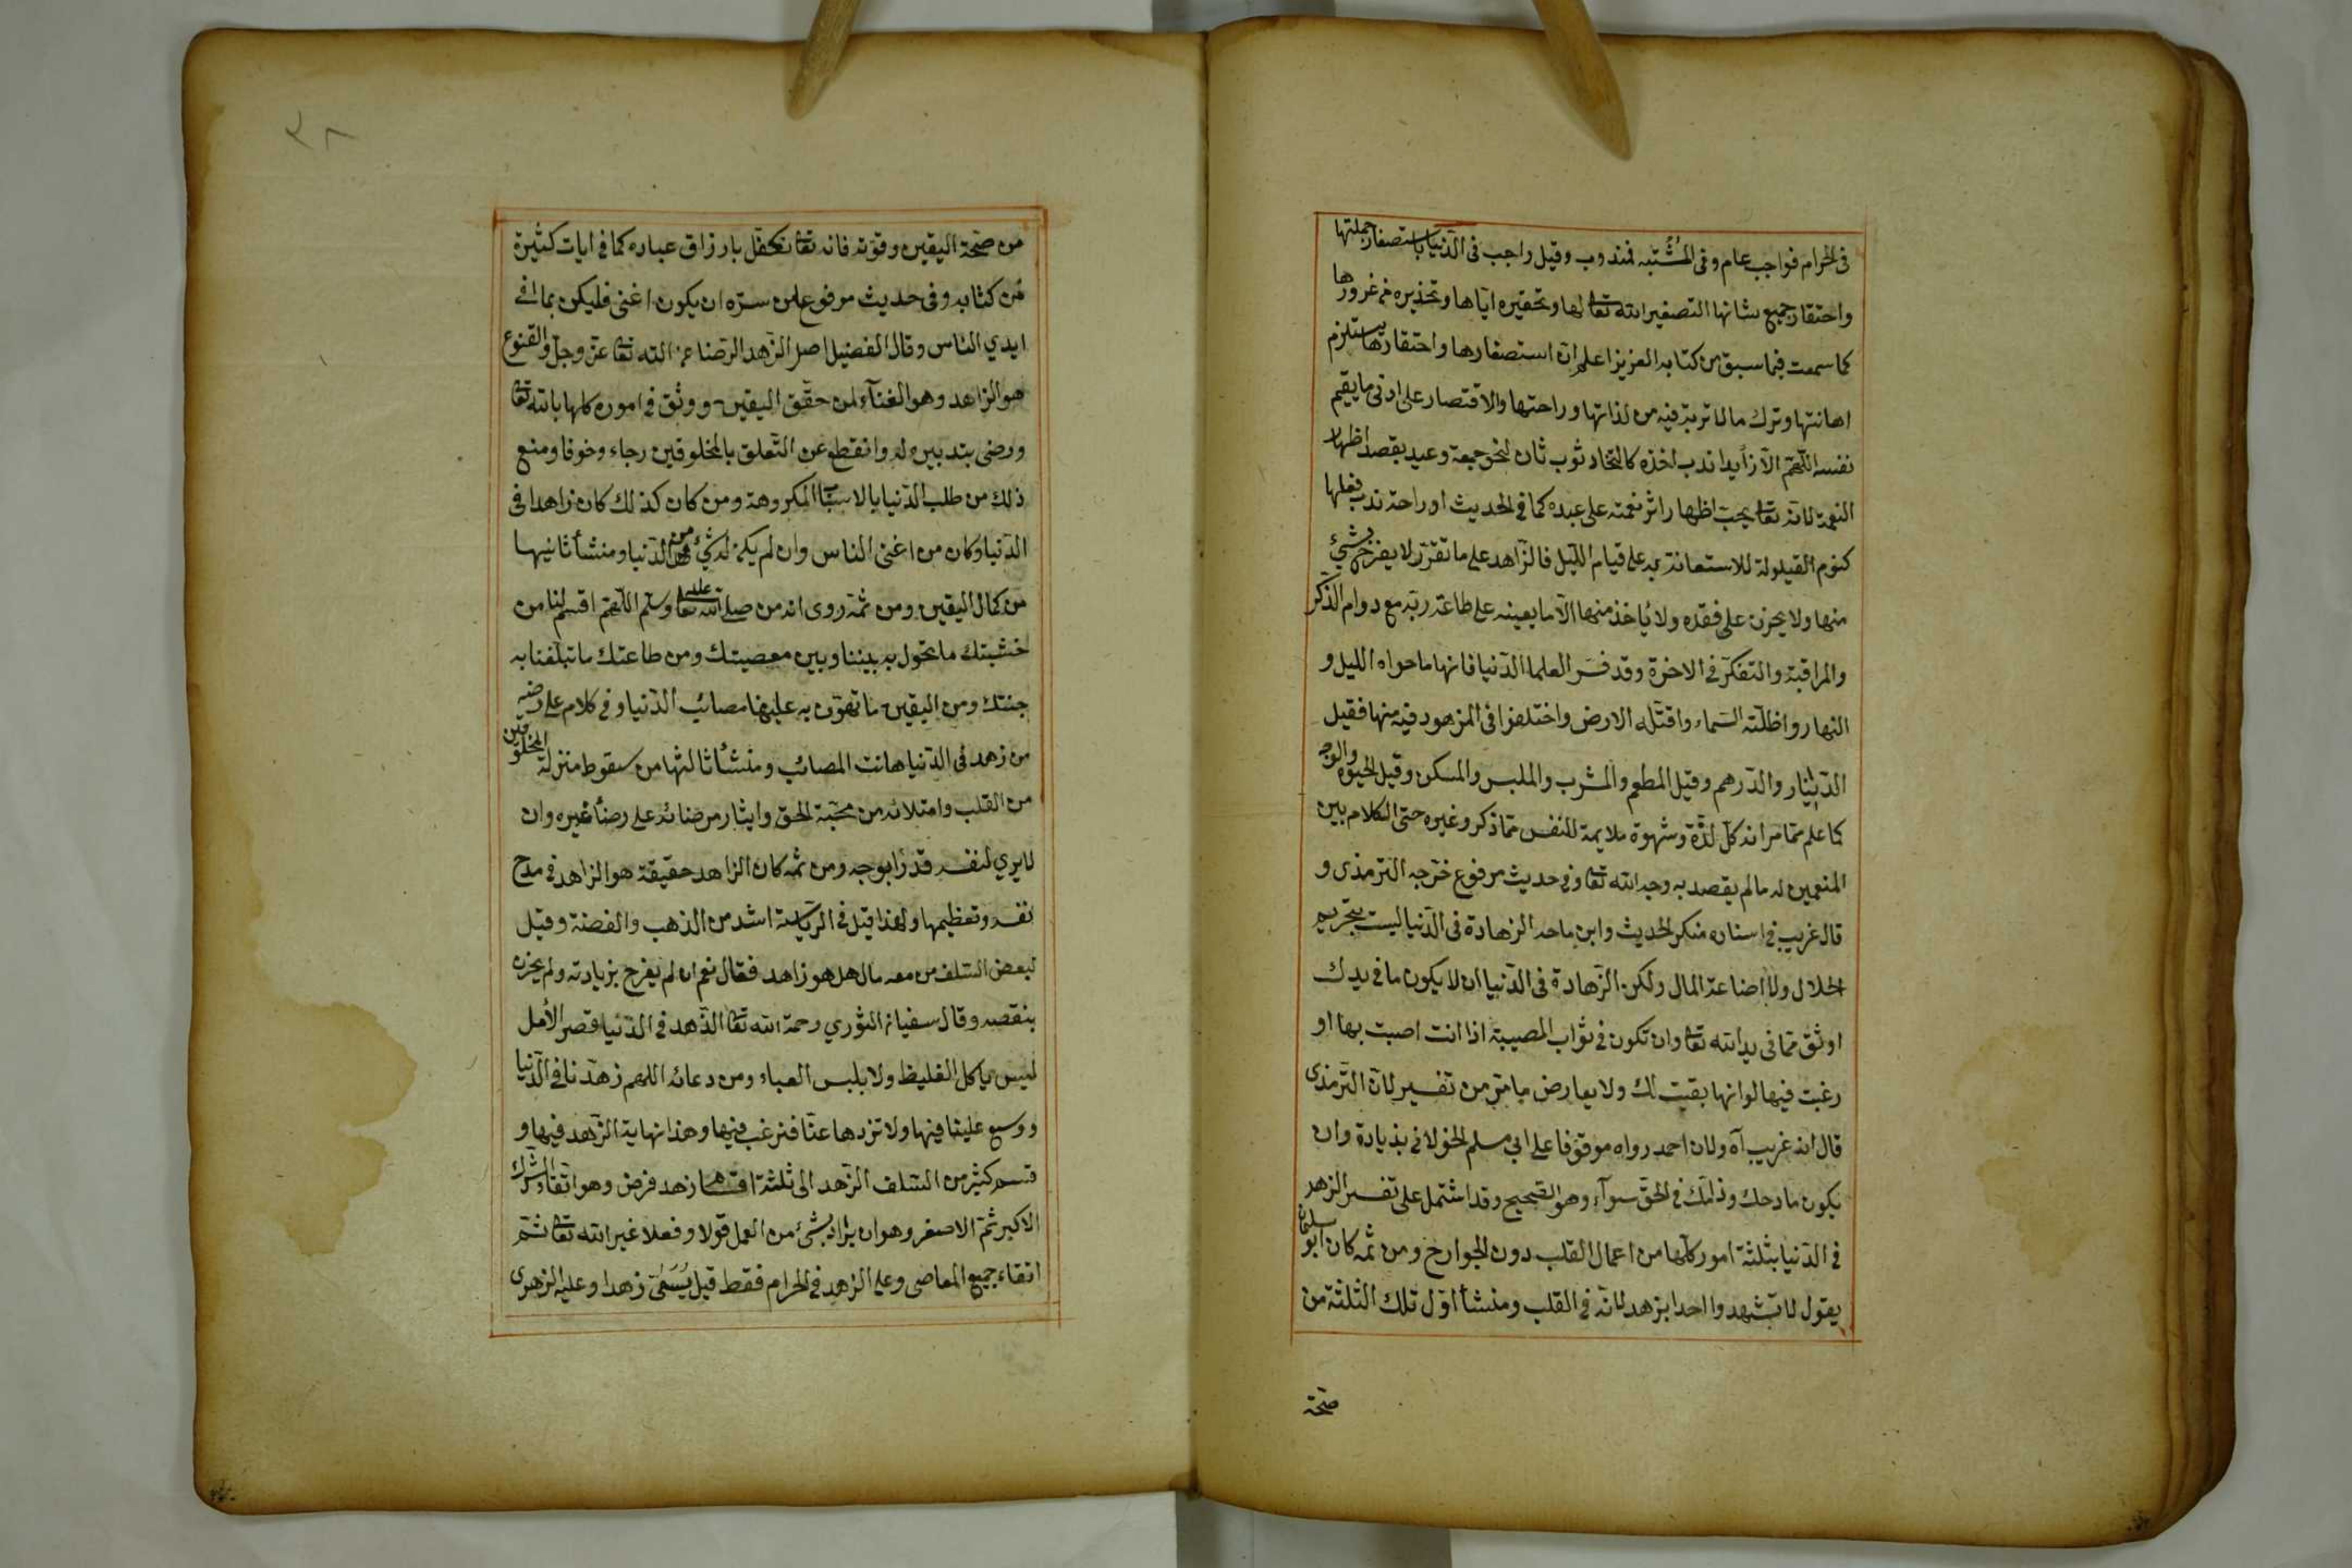 فى الحرام فواجب عام وفى المُشتبه فمندوب وقيل واجب فى الدّنيا باستصغار جملتها
واحتقار جميع شانها التصغير الله تعا لها وتحقيره ايّاها وتحذيره من غرورها
كما سمعت فيما سبق من كتابه العزيز اعلم انّ استصغارها واحتقارها يستلزم
اهانتها وترك مالا قربة فيه من لذاتها وراحتها والاقتصار على ادنى ما يقيم
نفسه اللّهمّ الّا زايدا ندب اخذه كاتخاد ثوب ثان لنحو جمعة وعيد بقصد اظهار
النعمة لانّه تعا يحبّ اظهار اثر نعمته على عبده كما فى الحديث او راحة ندب فعلها
كنوم القيلولة للاستعانة به على قيام اللّيل فالزّاهد على ما تقرّر لا يفرح بشئ
منها ولا يحزن على فقده ولا يُاخذ منها الّا ما يعينه على طاعة ربّه مع دوام الذّكر
والمراقبة والتفكّر فى الاخرة وقد فسّر العلما الدّنيا فانها ما حواه الليل و
النهار واظلّته السّماء واقتله الارض واختلفوا فى المزهود فيه منها فقيل
الدّينار والدّرهم وقيل المطعم والمشرب والملبس والمسكن وقيل الحيوة والوجه
كما علم ممّا مر انه كلّ لذّة وشهوة ملايمة للنفس ممّا ذكر وغيره حتى الكلام بين
المنعمين له ما لم يقصد به وجه الله تعا وفى حديث مرفوع خرّجه الترمذى و
قال غريب فى اسناده منكر الحديث وابن ماجه الزهادة فى الدّنيا ليست بتحريم
الحلال ولا اضاعة المال ولكن الزّهادة فى الدّنيا ان لا يكون ما فى يدك
اوثق ممّا فى يد الله تعا وان تكون فى ثواب المصيبة اذا انت اصبت بها او
رغبت فيها لو انها بقيت لك ولا يعارض ما مرّ من تفسير لانّ التّرمذى
قال انه غريب آه ولان احمد رواه موقوفا على ابى مسلم الخولانى بزيادة وان
يكون مادحك وذامّك فى الحقّ سوآء وهو الصّحيح وقد اشتمل على تفسير الزهد
فى الدّنيا بثلثة امور كلّها من اعمال القلب دون الجوارح ومن ثمه كان ابو سليمان
يقول لا تشهد واحدا بزهد لانّه فى القلب ومنشأ اوّل تلك الثلثة من
صحّة
٣٨
من صحّة اليقين وقوّته فانه تعا تكفّل بارزاق عباده كما فى ايات كثيرة
من كتابه وفى حديث مرفوع من سرّه ان يكون اغنى فليكن بما فى
ايدي الناس وقال الفضيل اصل الزّهد الرّضا عن الله تعا عزّ وجلّ والقنوع
هو الزاهد وهو الغنآء لمن حقّق اليقين ووثق فى اموره كلها بالله تعا
ورضى بتدبيره له وانقطع عن التّعلق بالمخلوقين رجاء وخوفا ومنع
ذلك من طلب الدّنيا بالاسبا المكروهة ومن كان كذلك كان زاهدا فى
الدّنيا وكان من اغنى الناس وان لم يكن له شئ من الدّنيا ومنشأ ثانيها
من كمال اليقين ومن ثمة روى انه من صلى الله تعا عليه وسلّم اللّهمّ اقسم لنا من
خشيتك ما تحول به بيننا وبين معصيتك ومن طاعتك ما تبلّغنا به
جنتك ومن اليقين ما تهوّن به علينا مصائب الدّنيا وفى كلام على رضيه
من زهد فى الدّنيا هانت المصائب ومنشأ ثالثها من سقوط منزلة المخلوقين
من القلب وامتلائه من محبّة الحق وايثار مرضائه على رضا غيره وان
لا يري لنفسه قدرًا بوجه ومن ثمه كان الزاهد حقيقة هو الزاهد فى مدح
نفسه وتعظيمها ولهذا قيل فى الرّياسة اشد من الذهب والفضّة وقيل
لبعض السّلف من معه مال هل هو زاهد فقال نعم ان لم يفرح بزيادته ولم يحزن
بنقصه وقال سفيان الثوري رحمة الله تعا الزّهد فى الدّنيا قصر الأمل
ليس ياكل الغليظ ولا بلبس العباء ومن دعائه اللهم زهّدنا فى الدّنيا
ووسع علينا فيها ولا تزدها عنّا فنرغب فيها وهذا نهاية الزّهد فيها و
قسم كثير من السّلف الزّهد الى ثلثة اقسام زهد فرض وهو اتقاء الشّرك
الاكبر ثمّ الاصغر وهو ان يراد بشئ من العمل قولا وفعلا غير الله تعا ثمّ
اتقاء جميع المعاصى وعلى الزهد فى الحرام فقط قيل يُسَمّى زهدا وعليه الزهرى